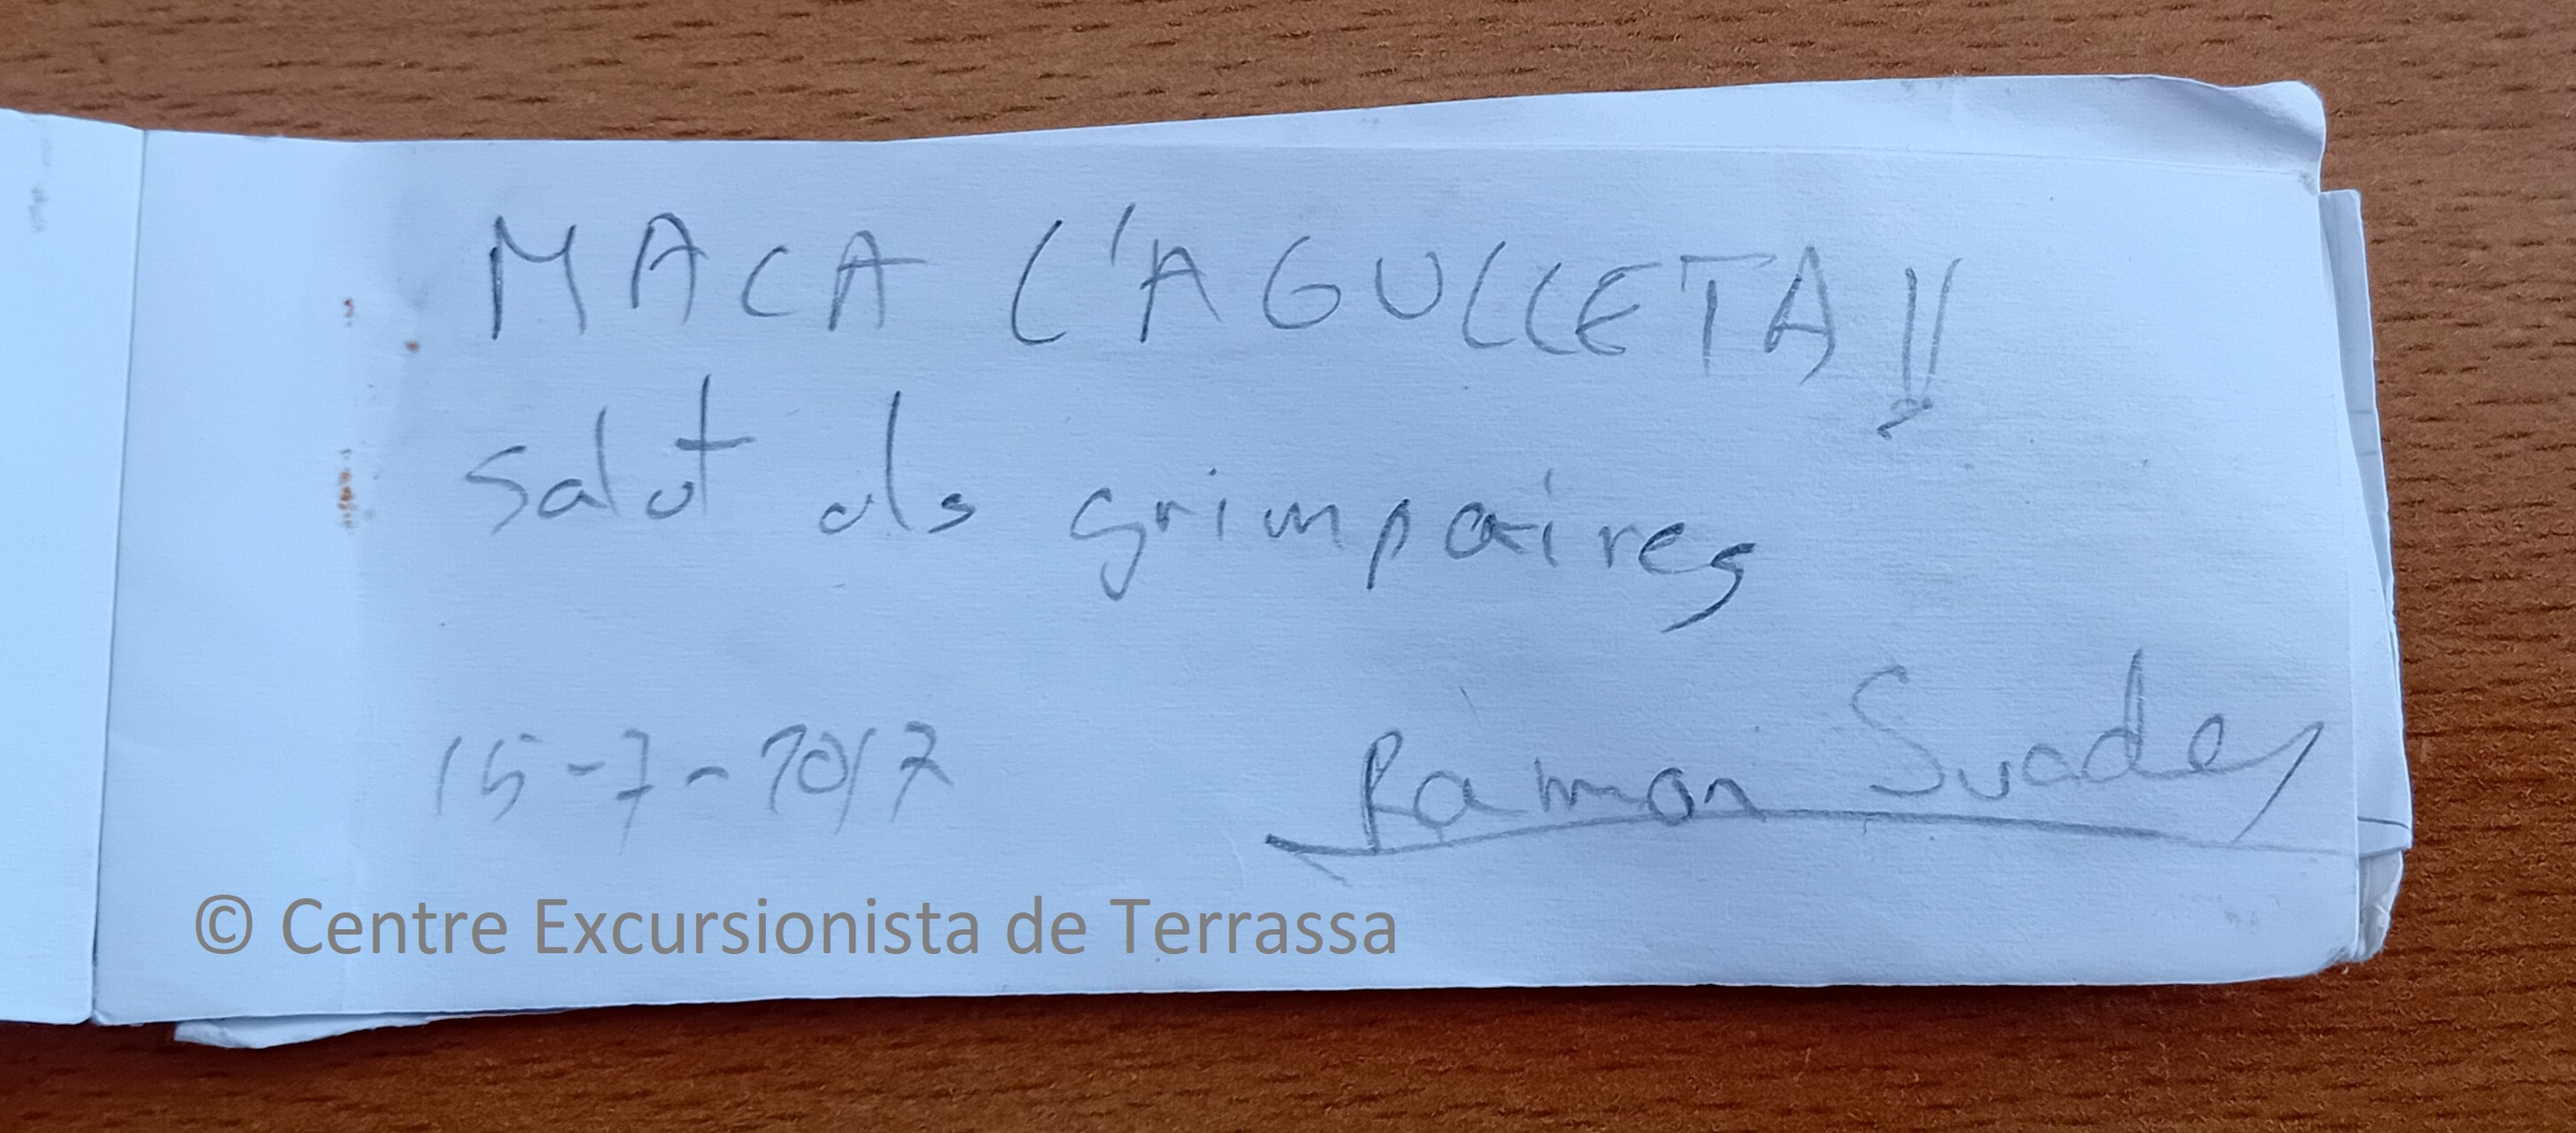 MACA L'AGULLETA!!
Salut als grimpaires
15-7-2017
Ramon Suades
© Centre Excursionista de Terrassa